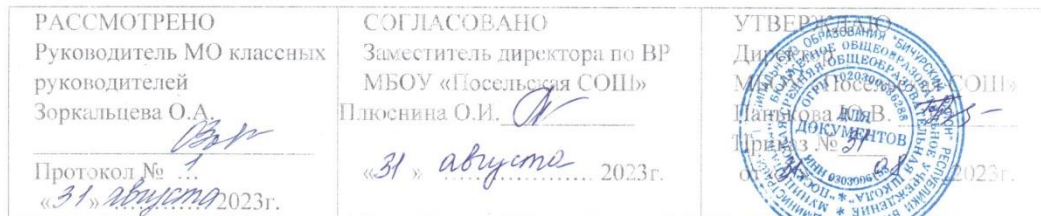 РАССМОТРЕНО
Руководитель МО классных
руководителей
Зоркальцева О.А.
Протокол № 1
«31» августа 2023г.
СОГЛАСОВАНО
Заместитель директора по ВР
МБОУ «Посельская СОШ»
Плюснина О.И.
«31» августа 2023г.
УТВЕРЖДАЮ
«Посельская СОШ»
Ю.В.
Приказ № 31
08 2023г.
ДЛЯ
ДОКУМЕНТОВ